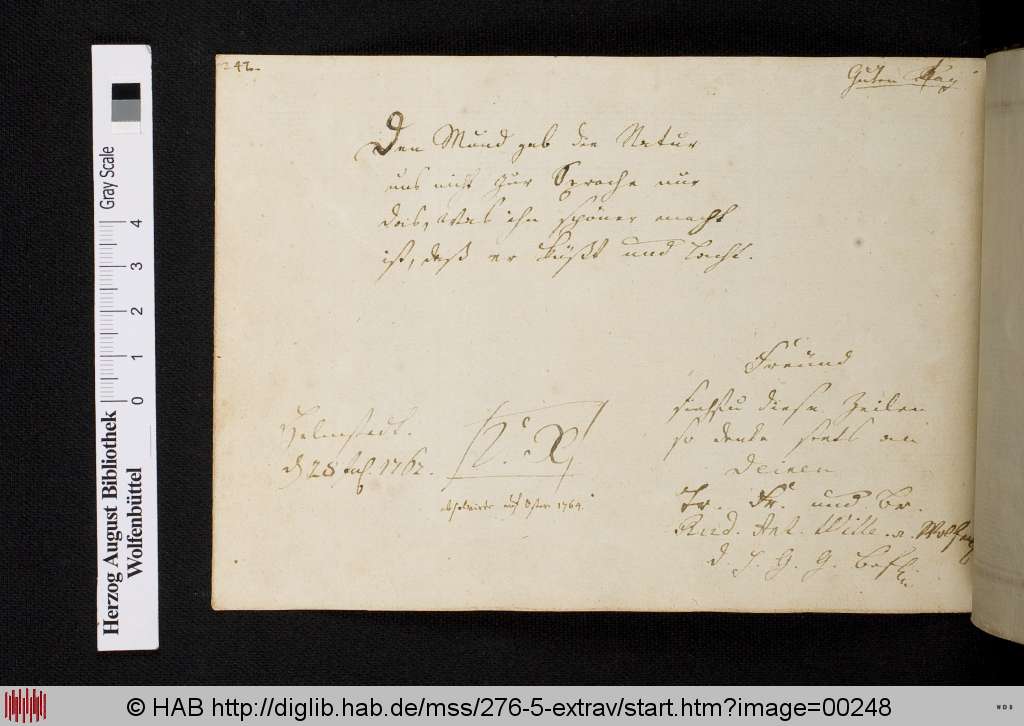 242.
Guten Tag
Den Mund gab die Natur
uns nicht zur Sprache nur
das, was ihn schöner macht
ist, daß er küßt und lacht.
Freund
siehstu diese Zeilen
so denke stets an
Deinen
Tr. Fr. und Br.
Rud. Ant. Wille
d. G. G.
Helmstedt.
d 28 1762.
absolvirte auf Oster 1764.
Herzog August Bibliothek
Wolfenbüttel
Gray Scale
0 1 2 3 4
© HAB http://diglib.hab.de/mss/276-5-extrav/start.htm?image=00248